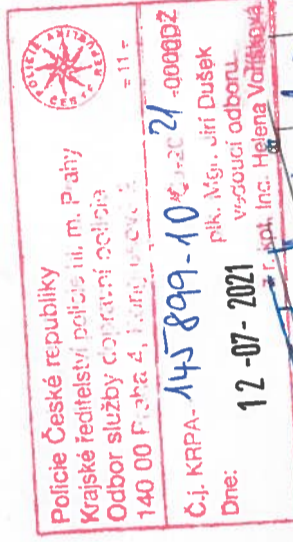 Policie České republiky
Krajské ředitelství policie hl. m. Prahy
Odbor služby dopravní policie
140 00 Praha 4,
- 11 -
Č.j. KRPA- 145899-10 21 -000002
plk. Mgr. Jiří Dušek
Dne: vedoucí odboru
12 -07- 2021
Helena